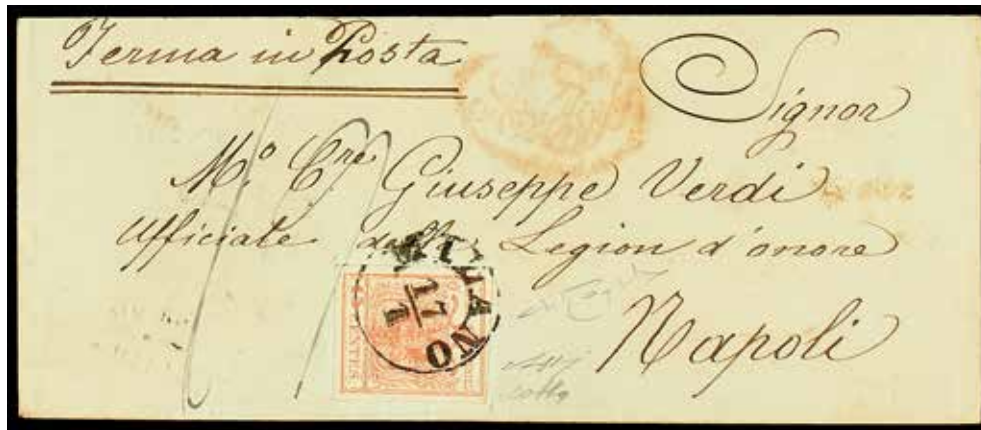 Ferma in Posta
Signor
M.º C.re Giuseppe Verdi
Ufficiale della Legion d'onore
Napoli
MILANO
17
1
CENTES.